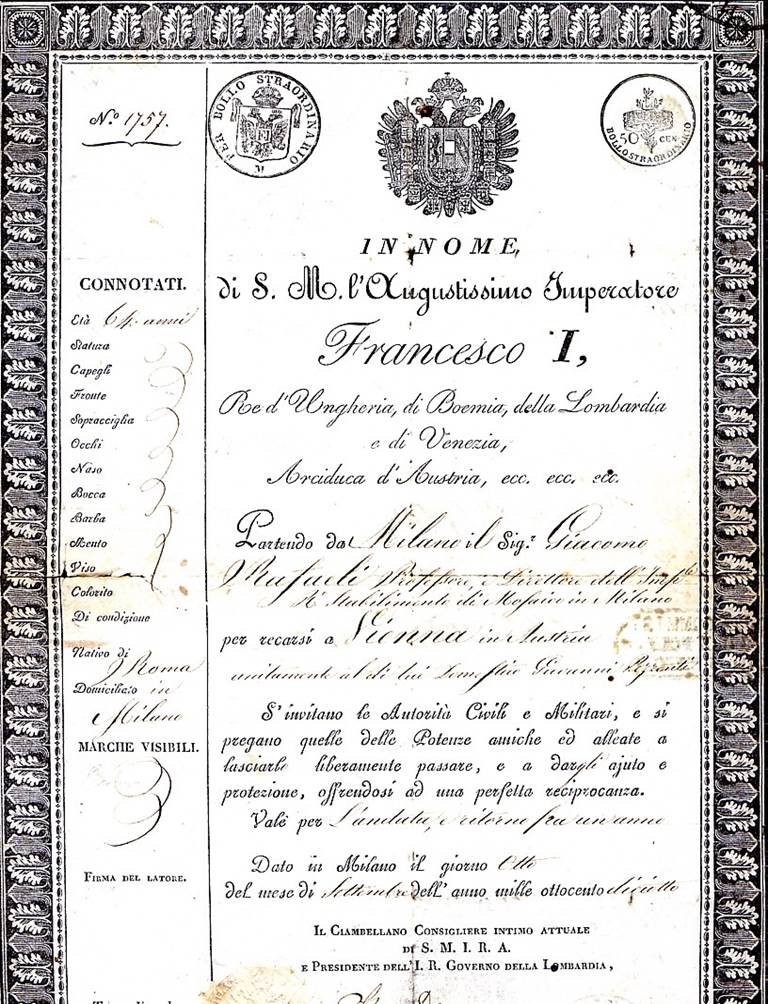 N.o 1757.
PER BOLLO STRAORDINARIO
M
50 CEN
BOLLO STRAORDINARIO
IN NOME,
di S. M. l'Augustissimo Imperatore
Francesco I,
Re d'Ungheria, di Boemia, della Lombardia
e di Venezia,
Arciduca d'Austria, ecc. ecc. ecc.
CONNOTATI.
Età 64 anni
Statura
Capegli
Fronte
Sopracciglia
Occhi
Naso
Bocca
Barba
Mento
Viso
Colorito
Di condizione
Nativo di
Roma
Domiciliato in
Milano
MARCHE VISIBILI.
FIRMA DEL LATORE.
Partendo da Milano il Sig.r Giacomo
Rafaeli Professore e Direttore dell' Imp.le
R. Stabilimento di Mosaico in Milano
per recarsi a Vienna in Austria
unitamente al di lui Domestico Giovanni
S'invitano le Autorità Civili e Militari, e si
pregano quelle delle Potenze amiche ed alleate a
lasciarlo liberamente passare, e a dargli ajuto e
protezione, offrendosi ad una perfetta reciprocanza.
Vale per l'andata, e ritorno fra un anno
Dato in Milano il giorno Otto
del mese di Settembre dell' anno mille ottocento diciotto
IL CIAMBELLANO CONSIGLIERE INTIMO ATTUALE
DI S. M. I. R. A.
E PRESIDENTE DELL'I. R. GOVERNO DELLA LOMBARDIA,